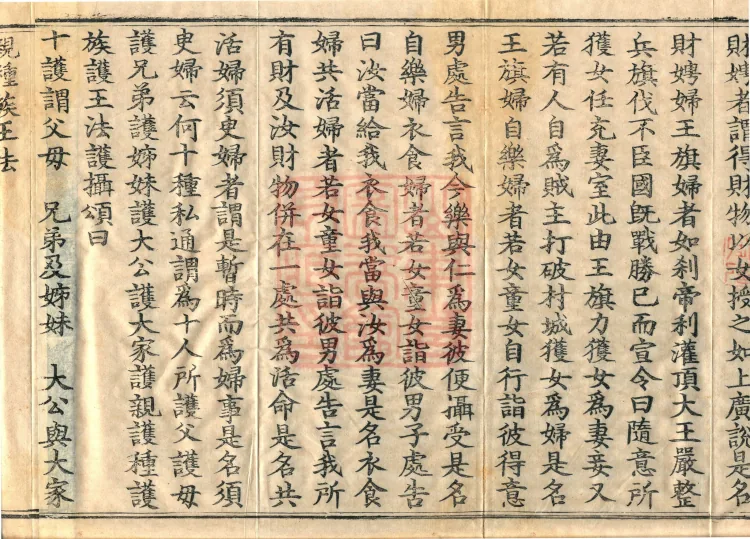 財娉者謂得財物以女授之如上廣說是名
財娉婦王旗婦者如刹帝利灌頂大王嚴整
兵旗伐不臣國旣戰勝已而宣令曰隨意所
獲女任充妻室此由王旗力獲女爲妻妾又
若有人自爲賊主打破村城獲女爲婦是名
王旗婦自樂婦者若女童女自行詣彼得意
男處告言我今樂與仁爲妻彼便攝受是名
自樂婦衣食婦者若女童女詣彼男子處告
曰汝當給我衣食我當與汝爲妻是名衣食
婦共活婦者若女童女詣彼男處告言我所
有財及汝財物併在一處共爲活命是名共
活婦須臾婦者謂是暫時而爲婦事是名須
臾婦云何十種私通謂爲十人所護父護母
護兄弟護姊妹護大公護大家護親護種護
族護王法護攝頌曰
十護謂父母　兄弟及姊妹　大公與大家
親種族王法